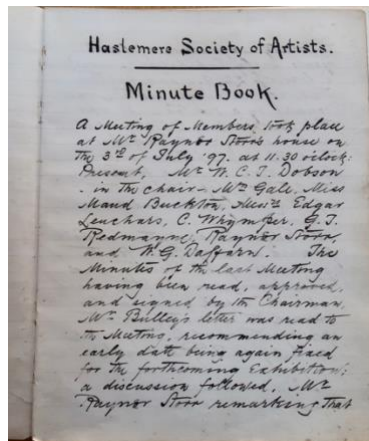 Haslemere Society of Artists.
Minute Book.
A Meeting of Members took place
at Mr. Rayner Storr's house on
the 3rd of July '97. at 11.30 o'clock:
Present, Mr. W. C. T. Dobson
in the chair – Mr. Gale, Miss
Maud Buckton, Messrs. Edgar
Leuchars, C. Whymper, G. T.
Redmayne, Rayner Storr,
and W. G. Dafforn. The
Minutes of the last Meeting
having been read, approved,
and signed by the Chairman,
Mr. Bulley's letter was read to
the Meeting, recommending an
early date being again fixed
for the forthcoming Exhibition;
a discussion followed, Mr.
Rayner Storr remarking that